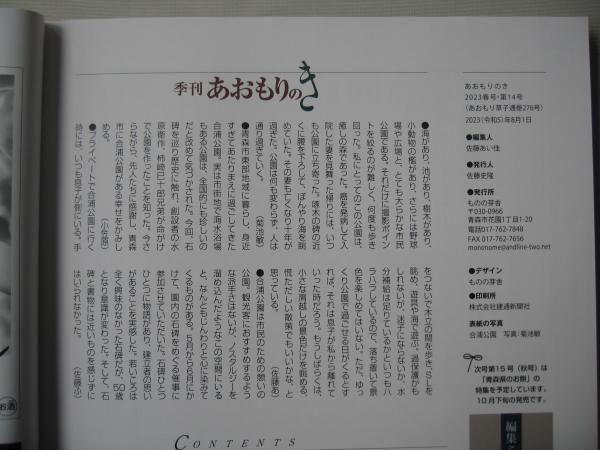 季刊 あおもりのき
●海があり、池があり、樹木があり、
小動物の檻があり、さらには野球
場や広場と、とても大らかな市民
公園である。それだけに撮影ポイン
トを絞るのが難しく、何度も歩き
回った。私にとってのこの公園は、
癒しの森であった。癌を発病して入
院した妻を見舞った帰りには、いつ
も公園に立ち寄った。啄木の碑の近
くに腰を下ろして、ぼんやり海を眺
めていた。その妻も亡くなり十年が
過ぎた。公園は何も変わらず、人は
通り過ぎていく。　（菊池敏）
●青森市東部地域に暮らし、身近
すぎてあたりまえに過ごしてきた
合浦公園。実は市街地で海水浴場
もある公園は、全国的にも珍しいの
だと改めて気づかされた。今回、石
碑を巡り歴史に触れ、創設者の水
原衛作、柿崎巳十郎兄弟が命がけ
で公園を作ったことを知った。今さ
らながら、先人たちに感謝し、青森
市に合浦公園がある幸せをかみし
める。　（小笠原）
●プライベートで合浦公園に行く
時には、いつも息子が側にいる。手
をつないで木立の間を歩き、SLを
眺め、遊具や海で遊ぶ。過保護かも
しれないが、迷子にならないか、水
分補給は足りているかといつもハ
ラハラしているので、落ち着いて景
色を楽しめてはいない。ただ、ゆっ
くり公園で過ごせる日がくるとす
れば、それは息子が私から離れて
いった時だろう。もうしばらくは、
小さな肩越しの景色だけを眺める、
慌ただしい散策でもいいかな、と
思っている。　（佐藤あ）
●合浦公園は市民のための憩いの
公園、観光客におすすめするよう
な派手さはないが、ノスタルジーを
溜め込んだようなこの空間にいる
と、なんともじんわりと心に染みて
くるものがある。5月から6月にか
けて、園内の石碑をめぐる催事に
参加させていただいた。石碑ひとつ
ひとつに物語があり、建立者の思い
があることを実感した。若いころは
全く興味のなかった石碑だが、50歳
となり意識が変わった。そして、石
碑と書物には近いものを感じずに
はいられなかった。　（佐藤小）
CONTENTS
あおもりのき
2023春号・第14号
（あおもり草子通巻276号）
2023（令和5）年8月1日
●編集人
佐藤あい佳
●発行人
佐藤史隆
●発行所
ものの芽舎
〒030-0966
青森市花園1丁目1-20
電話017-762-7848
FAX 017-762-7656
mononome@andline-two.net
●デザイン
ものの芽舎
●印刷所
株式会社建通新聞社
表紙の写真
合浦公園　写真：菊池敏
次号第15号（秋号）は
「青森県のお餅」の
特集を予定しています。
10月下旬の発売です。
編集
お酒